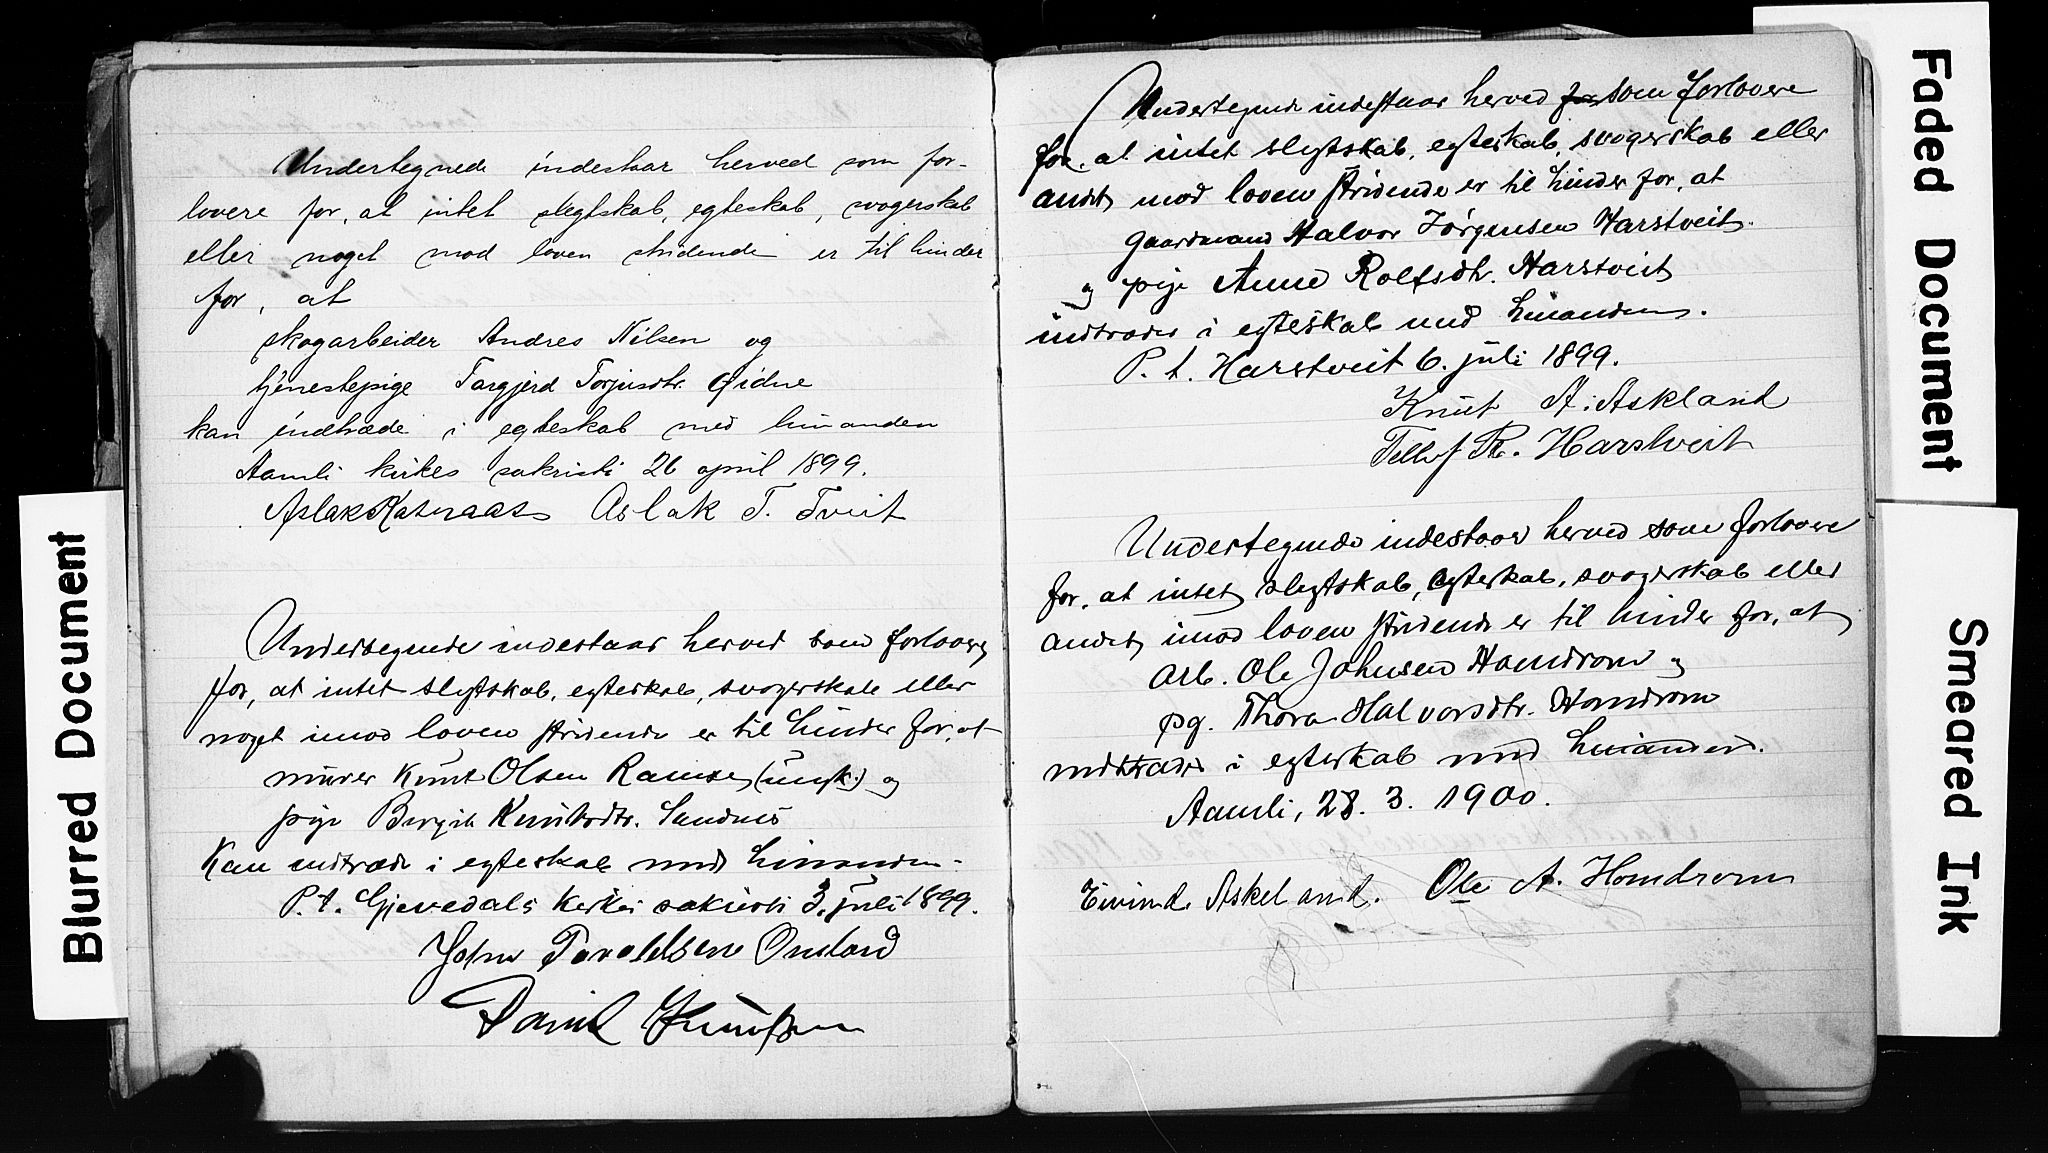 Undertegnede indestaar herved som for-
lovere for, at intet slegtskab, egteskab, svogerskab
eller noget mod loven stridende er til hinder
for, at
skogarbeider Andres Nilsen og
tjenestepige Targjerd Torjusdtr. Eidne
kan indtræde i egteskab med hinanden
Aamli kirkes sakristi 26 april 1899.
Aslak Katnaas Aslak T. Tveit
Undertegnede indestaar herved som forlovere
for, at intet slegtskab, egteskab, svogerskab eller
noget imod loven stridende er til hinder for, at
murer Knut Olsen Ramse (ungk.) og
pige Birgit Knutsdtr. Sandnes
Kan indtræde i egteskab med hinanden.
P. t. Gjevedals kirkes sakristi 3. juli 1899.
John Taraldsen Omland
Daniel Knutsen
Undertegnede indestaar herved for som forlovere
for, at intet slegtskab, egteskab, svogerskab eller
andet mod loven stridende er til hinder for, at
gaardmand Halvor Jørgensen Harstveit
og pige Anne Rolfsdtr. Harstveit
indtræder i egteskab med hinanden.
P. t. Harstveit 6. juli 1899.
Knut A. Askland
Tellef R. Harstveit
Undertegnede indestaar herved som forlovere
for, at intet slegtskab, egteskab, svogerskab eller
andet imod loven stridende er til hinder for, at
arb. Ole Johnsen Homdrom og
pg. Thora Halvorsdtr. Homdrom
indtræder i egteskab med hinanden.
Aamli, 28. 3. 1900.
Eivind Askeland. Ole A. Homdrom
Blurred Document
Faded Document
Smeared Ink